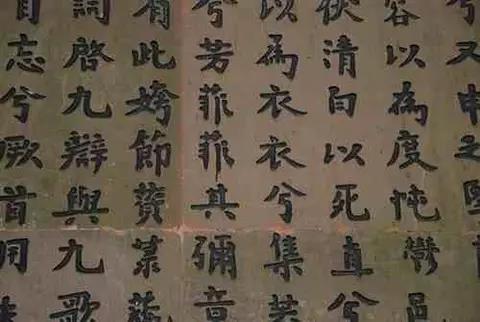 兮又申之
容以為度忳鬱邑
伏清白以死直兮
以為衣衣兮集芙
兮芳菲菲其彌章
有此姱節薋菉葹
啓九辯與九歌
自忘兮厥首用夫